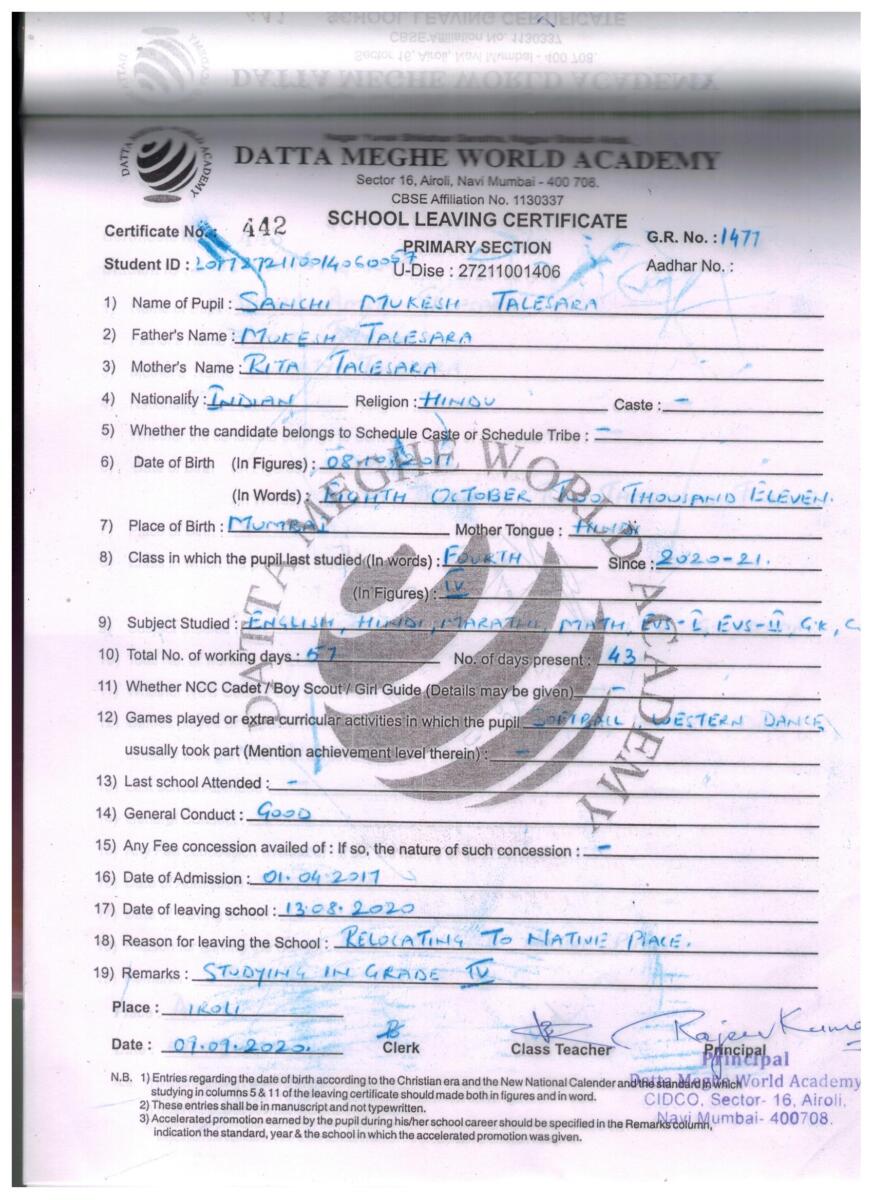 SCHOOL LEAVING CERTIFICATE
CBSE Affiliation No. 1130337
Sector 16, Airoli, Navi Mumbai - 400 708.
DATTA MEGHE WORLD ACADEMY
DATTA MEGHE WORLD ACADEMY
DATTA MEGHE WORLD ACADEMY
Sector 16, Airoli, Navi Mumbai - 400 708.
CBSE Affiliation No. 1130337
SCHOOL LEAVING CERTIFICATE
Certificate No.: 442 G.R. No. : 1477
PRIMARY SECTION
Student ID : U-Dise : 27211001406 Aadhar No. :
1) Name of Pupil : SANCHI MUKESH TALESARA
2) Father's Name : MUKESH TALESARA
3) Mother's Name : RITA TALESARA
4) Nationality : INDIAN Religion : HINDU Caste : -
5) Whether the candidate belongs to Schedule Caste or Schedule Tribe : -
6) Date of Birth (In Figures) : 08.10.2011
(In Words) : EIGHTH OCTOBER TWO THOUSAND ELEVEN.
7) Place of Birth : MUMBAI Mother Tongue : HINDI
8) Class in which the pupil last studied (In words) : FOURTH Since : 2020-21.
(In Figures) : IV
9) Subject Studied : ENGLISH, HINDI, MARATHI, MATH, EVS-I, EVS-II, G.K, C
10) Total No. of working days : 57 No. of days present : 43
11) Whether NCC Cadet / Boy Scout / Girl Guide (Details may be given) -
12) Games played or extra curricular activities in which the pupil SOFTBALL, WESTERN DANCE,
ususally took part (Mention achievement level therein) : -
13) Last school Attended : -
14) General Conduct : GOOD
15) Any Fee concession availed of : If so, the nature of such concession : -
16) Date of Admission : 01.04.2017
17) Date of leaving school : 13.08.2020
18) Reason for leaving the School : RELOCATING TO NATIVE PLACE.
19) Remarks : STUDYING IN GRADE IV
Place : AIROLI
Rajeev Kumar
Date : 09.09.2020. Clerk Class Teacher Principal
Principal
Datta Meghe World Academy
CIDCO, Sector- 16, Airoli,
Navi Mumbai- 400708.
N.B. 1) Entries regarding the date of birth according to the Christian era and the New National Calender and the standard in which
studying in columns 5 & 11 of the leaving certificate should made both in figures and in word.
2) These entries shall be in manuscript and not typewritten.
3) Accelerated promotion earned by the pupil during his/her school career should be specified in the Remarks column,
indication the standard, year & the school in which the accelerated promotion was given.
DATTA MEGHE WORLD ACADEMY